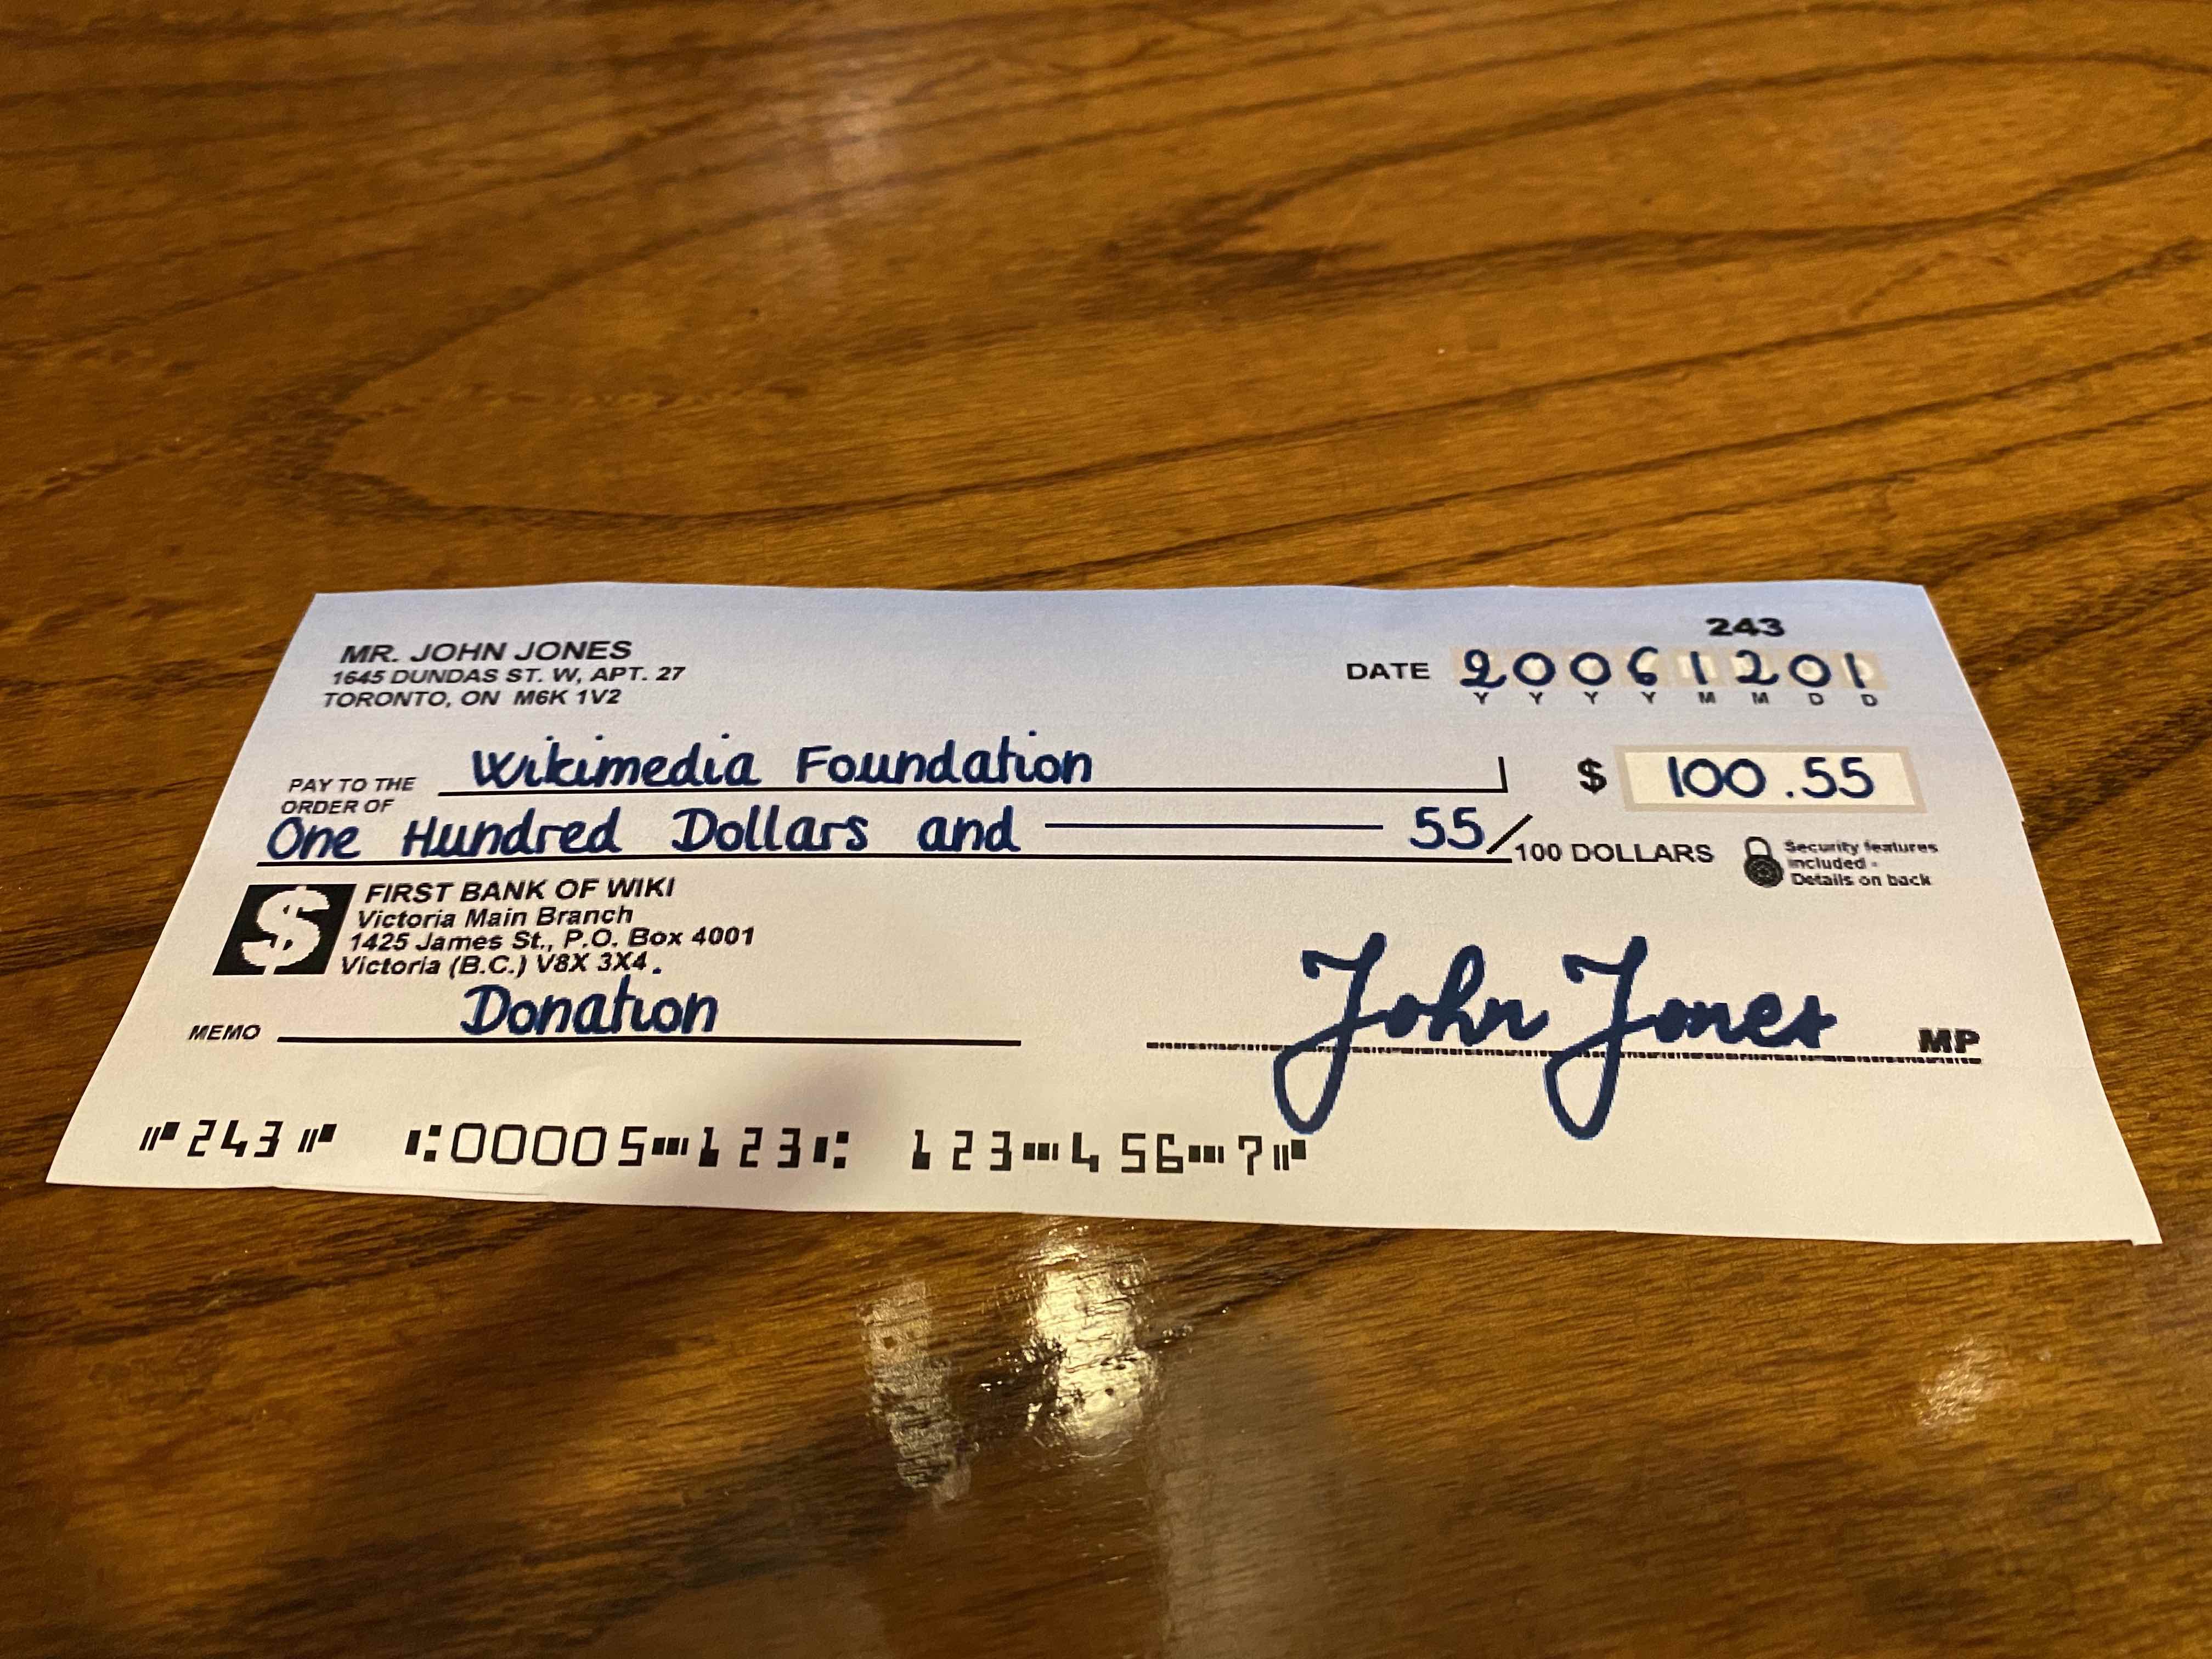 243
MR. JOHN JONES
1645 DUNDAS ST. W, APT. 27
TORONTO, ON M6K 1V2
DATE 20061201
Y Y Y Y M M D D
PAY TO THE ORDER OF Wikimedia Foundation $ 100.55
One Hundred Dollars and 55/100 DOLLARS
Security features
included -
Details on back
FIRST BANK OF WIKI
Victoria Main Branch
1425 James St., P.O. Box 4001
Victoria (B.C.) V8X 3X4
MEMO Donation
John Jones MP
⑈243⑈ ⑆00005⑉123⑆ 123⑉456⑉7⑈